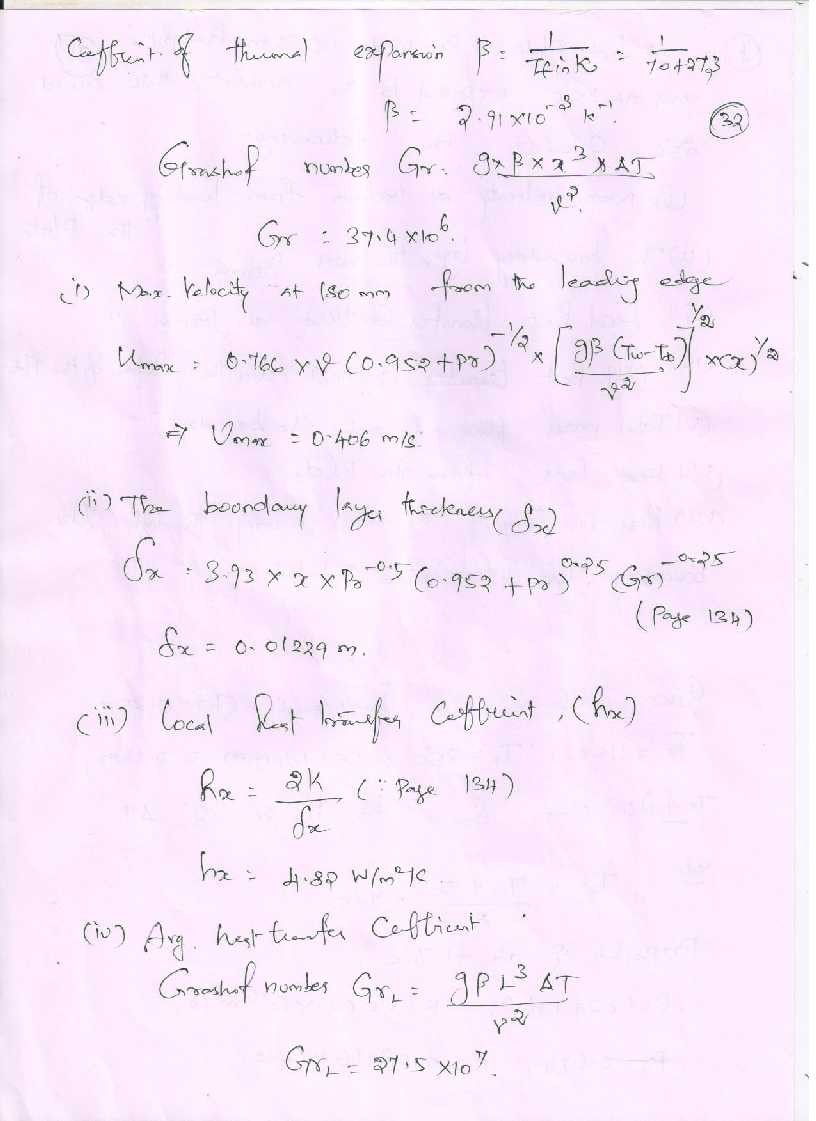 Coefficient of thermal expansion β = 1/Tf in K = 1/70+273
β = 2.91 x 10⁻³ K⁻¹.
32
Grashof number Gr = g x β x x³ x ΔT / ν²
Gr = 37.4 x 10⁶.
(i) Max. Velocity at 180 mm from the leading edge
Umax = 0.766 x ν (0.952 + Pr)^-1/2 x [gβ (Tw-T∞) / ν²]^1/2 x (x)^1/2
⇒ Umax = 0.406 m/s.
(ii) The boundary layer thickness (δx)
δx = 3.93 x x x Pr^-0.5 (0.952 + Pr)^0.25 (Gr)^-0.25
(Page 134)
δx = 0.01229 m.
(iii) Local Heat transfer Coefficient, (hx)
hx = 2K / δx (∵ Page 134)
hx = 4.82 W/m²K
(iv) Avg. heat transfer Coefficient
Grashof number GrL = gβ L³ ΔT / ν²
GrL = 27.5 x 10⁷.